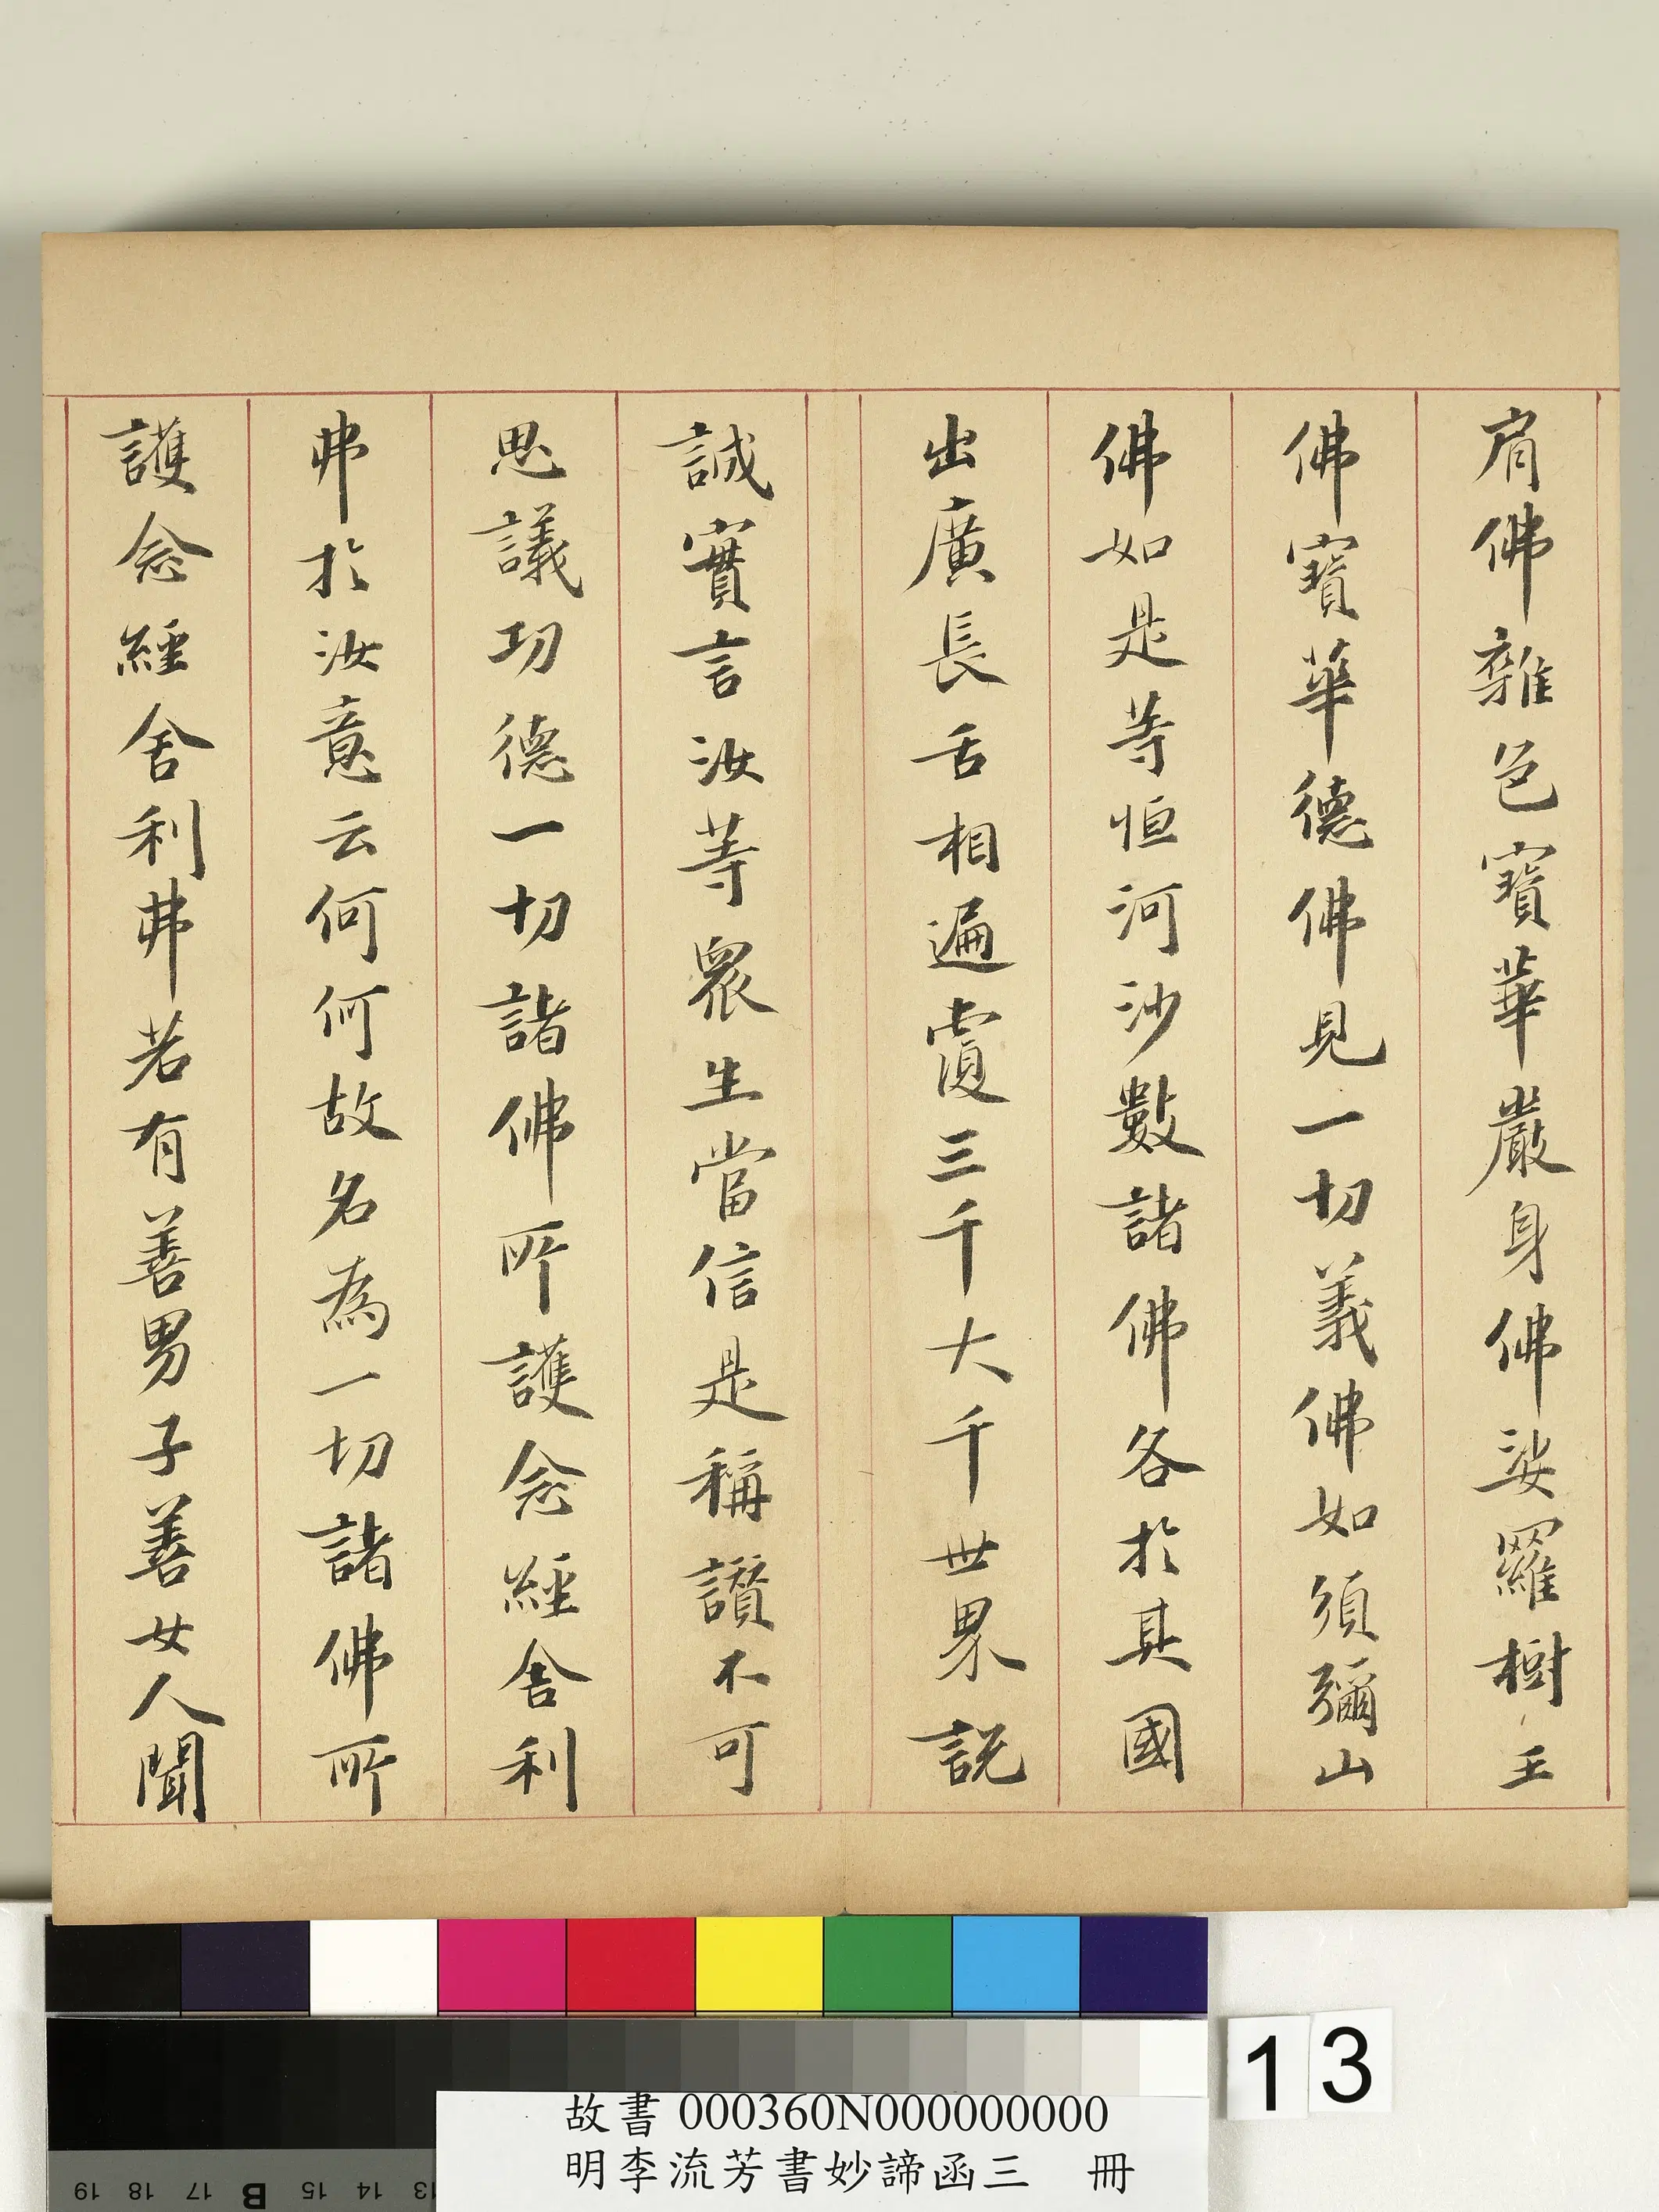 肩佛雜色寶華嚴身佛娑羅樹王
佛寶華德佛見一切義佛如須彌山
佛如是等恒河沙數諸佛各於其國
出廣長舌相遍覆三千大千世界說
誠實言汝等眾生當信是稱讚不可
思議功德一切諸佛所護念經舍利
弗於汝意云何何故名為一切諸佛所
護念經舍利弗若有善男子善女人聞
13
故書 000360N000000000
明李流芳書妙諦函三 冊
19 18 17 B 15 14 13